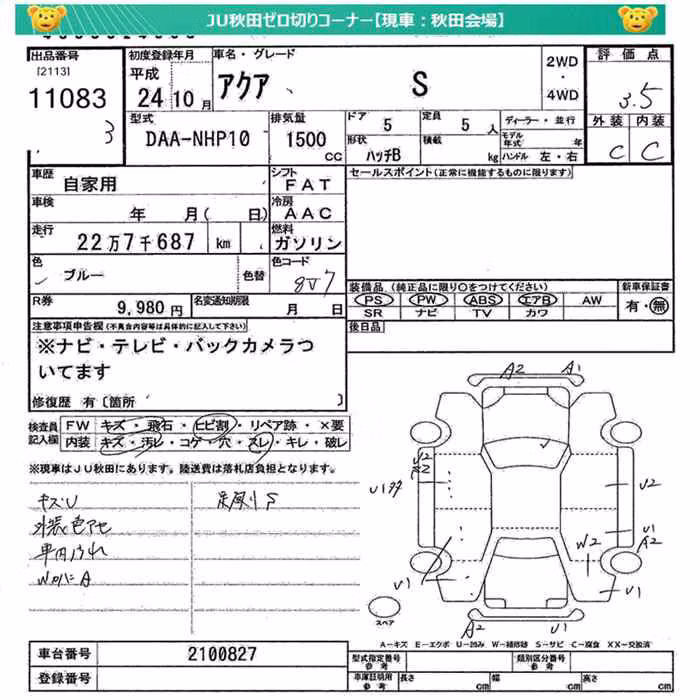 JU秋田ゼロ切りコーナー【現車：秋田会場】
出品番号 初度登録年月 車名・グレード 2WD・4WD 評価点
[2113] 11083 3
平成 24年 10月
アクア S
3.5
型式 排気量 ドア 定員 ディーラー・並行 外装 内装
DAA-NHP10 1500 CC
5 5人
モデル年式 年
形状 積載 ハンドル 左・右
ハッチB kg
C C
車歴 自家用 シフト FAT
セールスポイント（正常に機能するものに限ります）
車検 年 月( 日) 冷房 AAC
走行 22万7千687 km 燃料 ガソリン
色 ブルー 色替 色コード 8V7
装備品（純正品に限り○をつけてください） 新車保証書
PS PW ABS エアB AW 有・無
SR ナビ TV カワ
R券 9,980円 名変通知期限 月 日
後日品
注意事項申告欄（不具合内容等は具体的に記入して下さい）
※ナビ・テレビ・バックカメラつ
いてます
修復歴 有〔箇所 〕
検査員記入欄
FW キズ・飛石・ヒビ割・リペア跡・×要
内装 キズ・汚レ・コゲ・穴・スレ・キレ・破レ
※現車はJU秋田にあります。陸送費は落札店負担となります。
キズ・U
外装色アセ
車内汚れ
A2 A1
U2
A2
U2
U1
A2
W2
U1
U1
A2 U1
スペア
A－キズ E－エクボ U－凹み W－補修跡 S－サビ C－腐食 XX－交換済
車台番号 2100827
登録番号
型式指定番号 参考 類別区分番号 参考
車庫証明用 参考 長さ cm 幅 cm 高さ cm